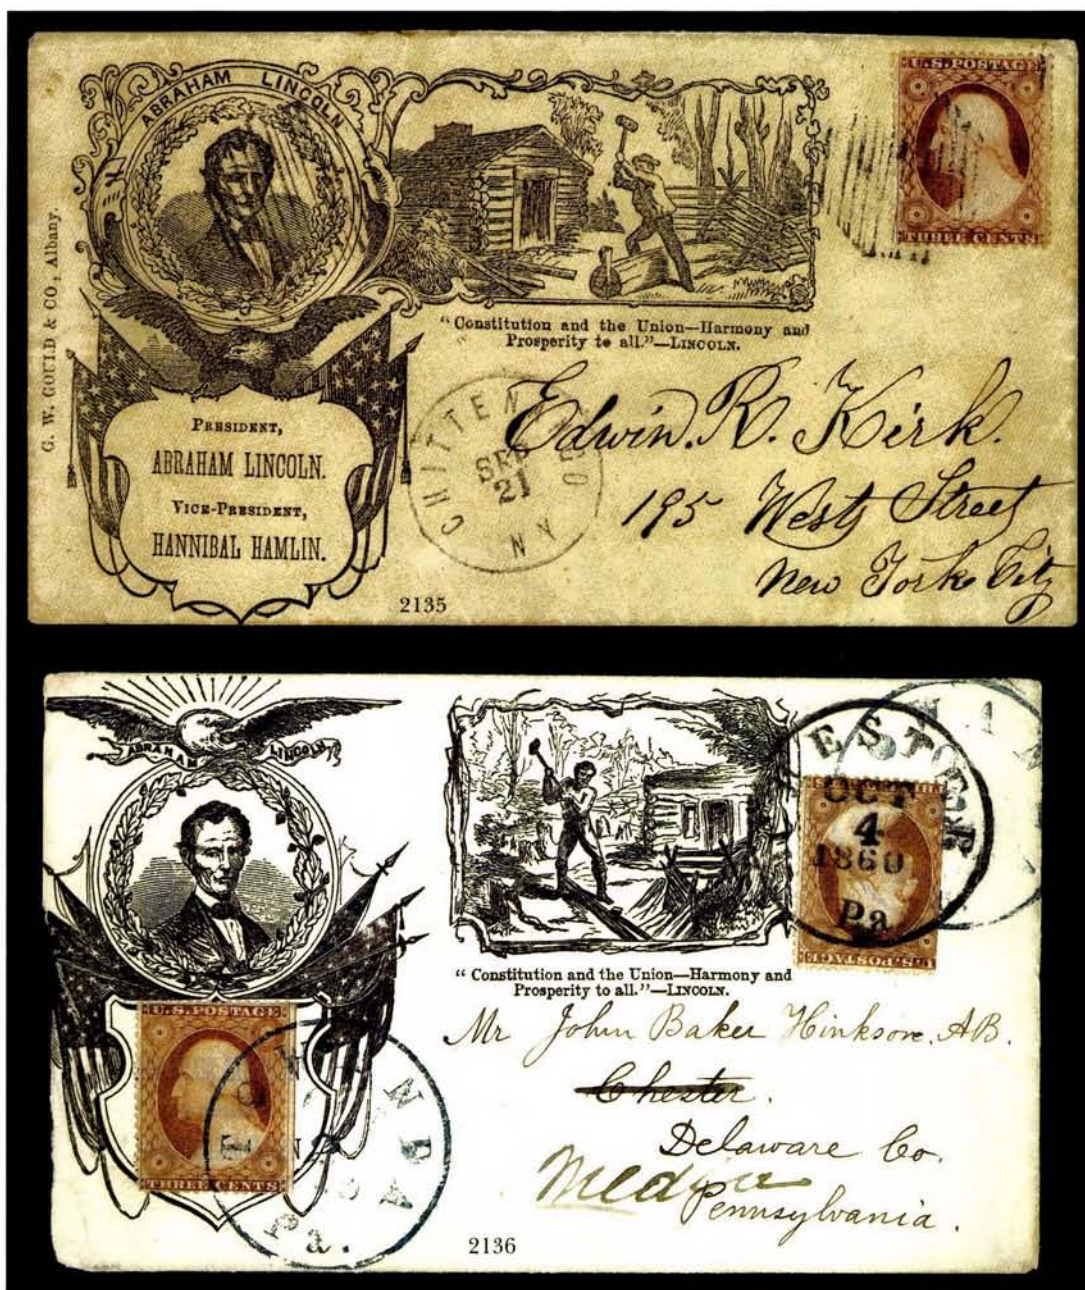 ABRAHAM LINCOLN
G. W. GOULD & CO., Albany.
U.S. POSTAGE
THREE CENTS
"Constitution and the Union—Harmony and
Prosperity to all."—LINCOLN.
PRESIDENT,
ABRAHAM LINCOLN.
VICE-PRESIDENT,
HANNIBAL HAMLIN.
SEP
21
NY
Edwin. R. Kirk.
195 West Street
New York City
2135
ABRAHAM LINCOLN
OCT
4
1860
Pa
U.S. POSTAGE
"Constitution and the Union—Harmony and
Prosperity to all."—LINCOLN.
Mr John Baker Hinkson. AB.
Chester.
Delaware Co.
Media
Pennsylvania.
U.S. POSTAGE
THREE CENTS
Pa.
2136